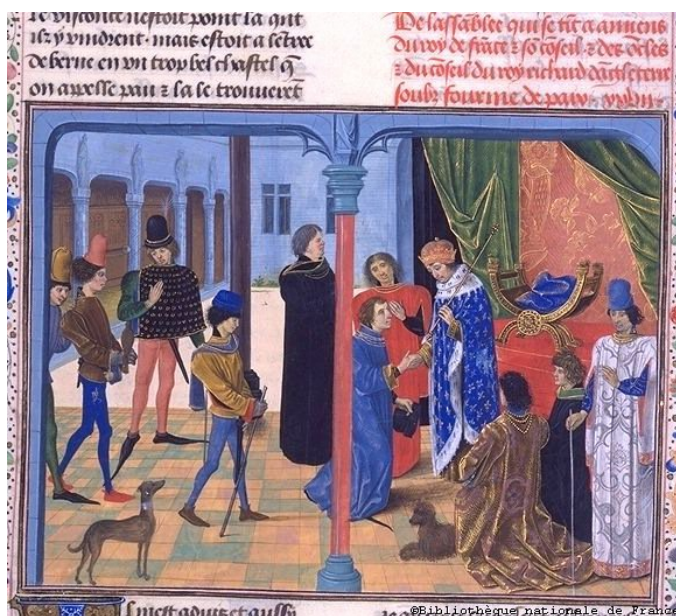 le visconte nestoit point la q̃nt
ilz y vindrent. mais estoit a lexrẽ
de berne en vn trop bel chastel q̃
on appelle pau ⁊ la le trouuerẽt
De lassãblee qui se tĩt a amiens
du roy de frãce ⁊ sõ cõseil ⁊ des õcles
⁊ du cõseil du roy richard dãgleterre
soubz fourme de paix
mest aduiz et aussy
©Bibliothèque nationale de France